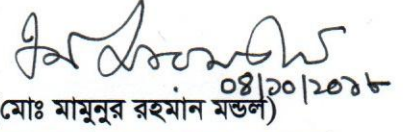 ০৪/১০/২০১৮
মোঃ মামুনুর রহমান মন্ডল)